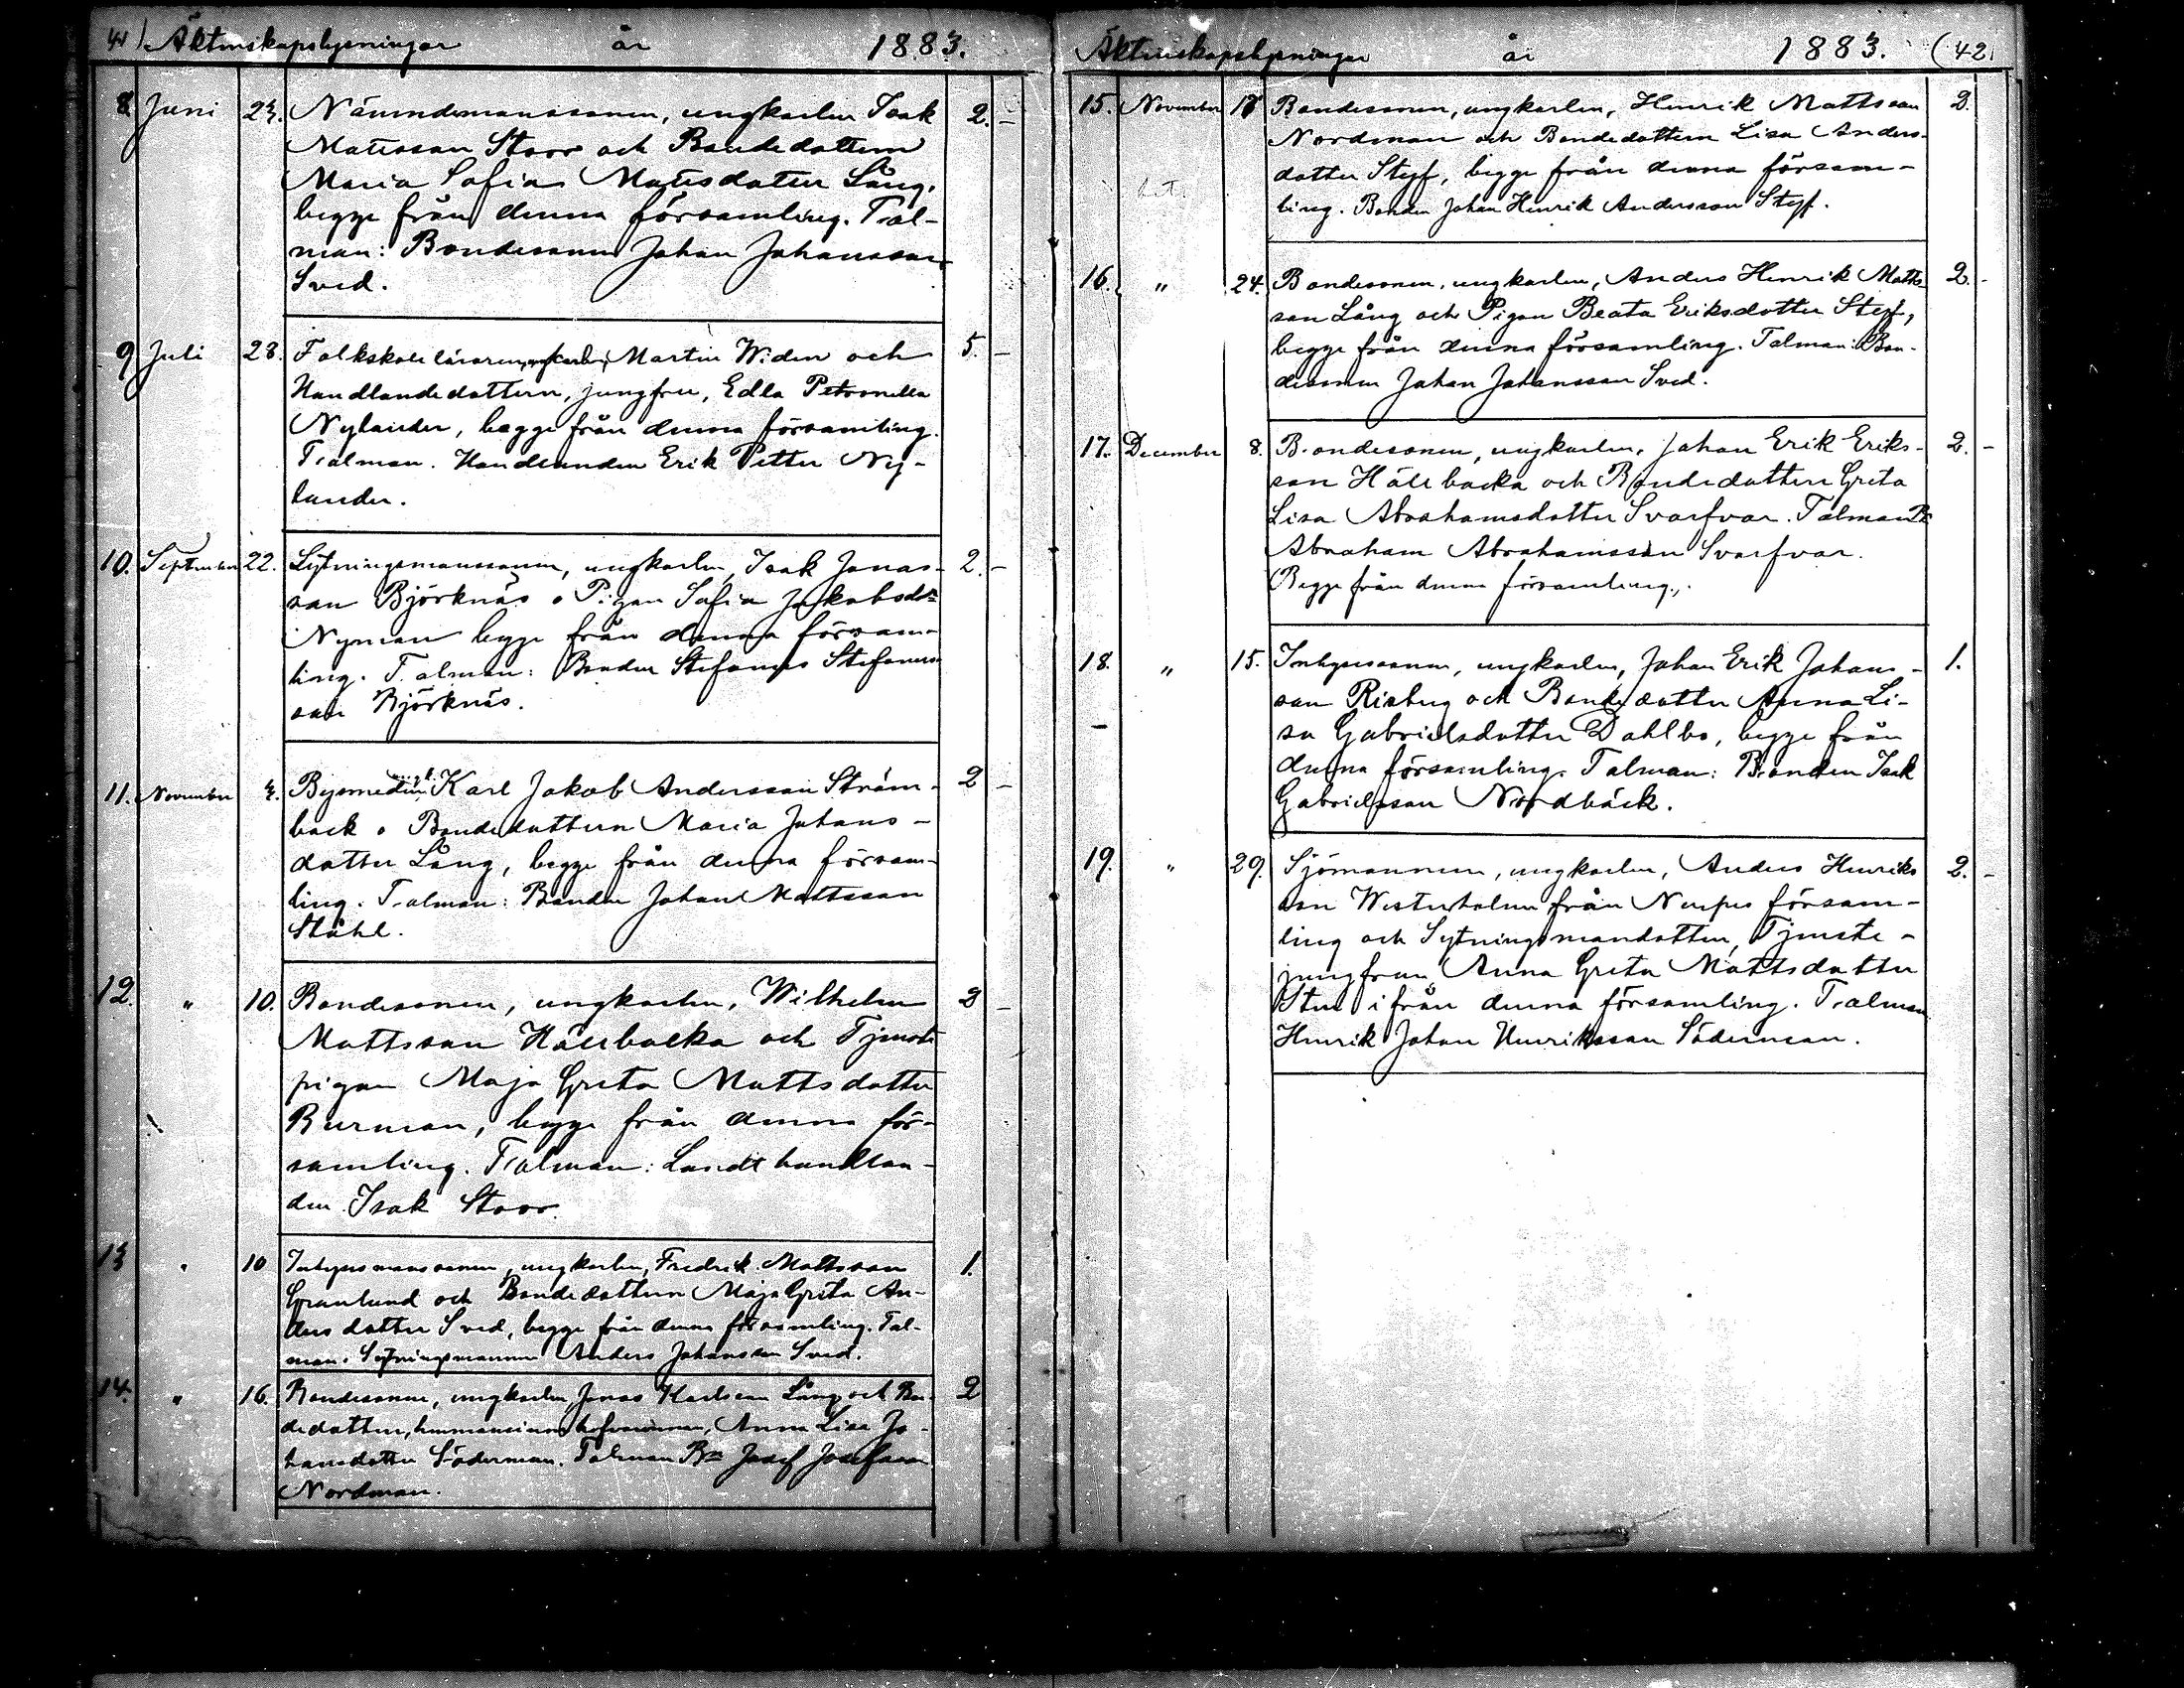 41) Äktenskapslysningar år 1883.
8. Juni 23. Nämndemanssonen, ungkarlen Isak 2. –
Mattsson Stoor och Bondedottern
Maria Sofia Mattsdotter Lång,
begge från denna församling. Tal-
man: Bondesonen Johan Johansson
Sved.
9 Juli 28. Folkskoleläraren, ungkarlen, Martin Widen och 5. –
Handlandedottern, jungfru, Edla Petronella
Nylander, begge från denna församling.
Talman. Handlanden Erik Petter Ny-
lander.
10. September 22. Sytningsmanssonen, ungkarlen, Isak Jonas- 2. –
son Björknäs o Pigan Sofia Jakobsdr
Nyman begge från denna försam-
ling. Talman: Bonden Stefanus Stefanus-
son Björknäs.
11. November 3. Bysmeden ungk. Karl Jakob Andersson Ström- 2 –
back o Bondedottern Maria Johans-
dotter Lång, begge från denna försam-
ling. Talman: Bonden Johan Mattsson
Ståhl.
12. " 10. Bondesonen, ungkarlen, Wilhelm 2 –
Mattsson Hällbacka och Tjenste
pigan Maja Greta Mattsdotter
Burman, begge från denna för-
samling. Talman: Landthandlan-
den Isak Stoor.
13 " 10 Inhysesmanssonen, ungkarlen, Fredrik Mattsson 1.
Granlund och Bondedottern Maja Greta An-
ders dotter Sved, begge från denna församling. Tal-
man. Sytningsmannen Anders Johansson Sved.
14. " 16. Bondesonen, ungkarlen, Jonas Karlsson Lång och Bon- 2
dedottern, Anna Lisa Jo-
hansdotter Söderman. Talman Bn Josef Josefsson
Nordman.
Äktenskapslysningar år 1883. (42
15. November 17 Bondesonen, ungkarlen, Henrik Mattsson 2.
Nordman och Bondedottern Lisa Anders-
dotter Styf, begge från denna försam-
ling. Bonden Johan Henrik Andersson Styf.
16. " 24. Bondesonen, ungkarlen, Anders Henrik Matts- 2. -
son Lång och Pigan Beata Eriksdotter Styf,
begge från denna församling. Talman: Bon-
desonen Johan Johansson Sved.
17. December 8. Bondesonen, ungkarlen, Johan Erik Eriks- 2. –
son Hällbacka och Bondedottern Greta
Lisa Abrahamsdotter Svarfvar. Talman Bn
Abraham Abrahamsson Svarfvar.
Begge från denna församling.
18. " 15. Inhysessonen, ungkarlen, Johan Erik Johans- 1.
son Risberg och Bondedotter Anna Li-
sa Gabrielsdotter Dahlbo, begge från
denna församling. Talman: Bonden Isak
Gabrielsson Nordbäck.
19. " 29. Sjömannen, ungkarlen, Anders Henriks 2. –
son Westerholm från Nerpes försam-
ling och Sytningsmandottern, Tjenste-
jungfrun Anna Greta Mattsdotter
ifrån denna församling. Talman
Henrik Johan Henriksson Söderman.